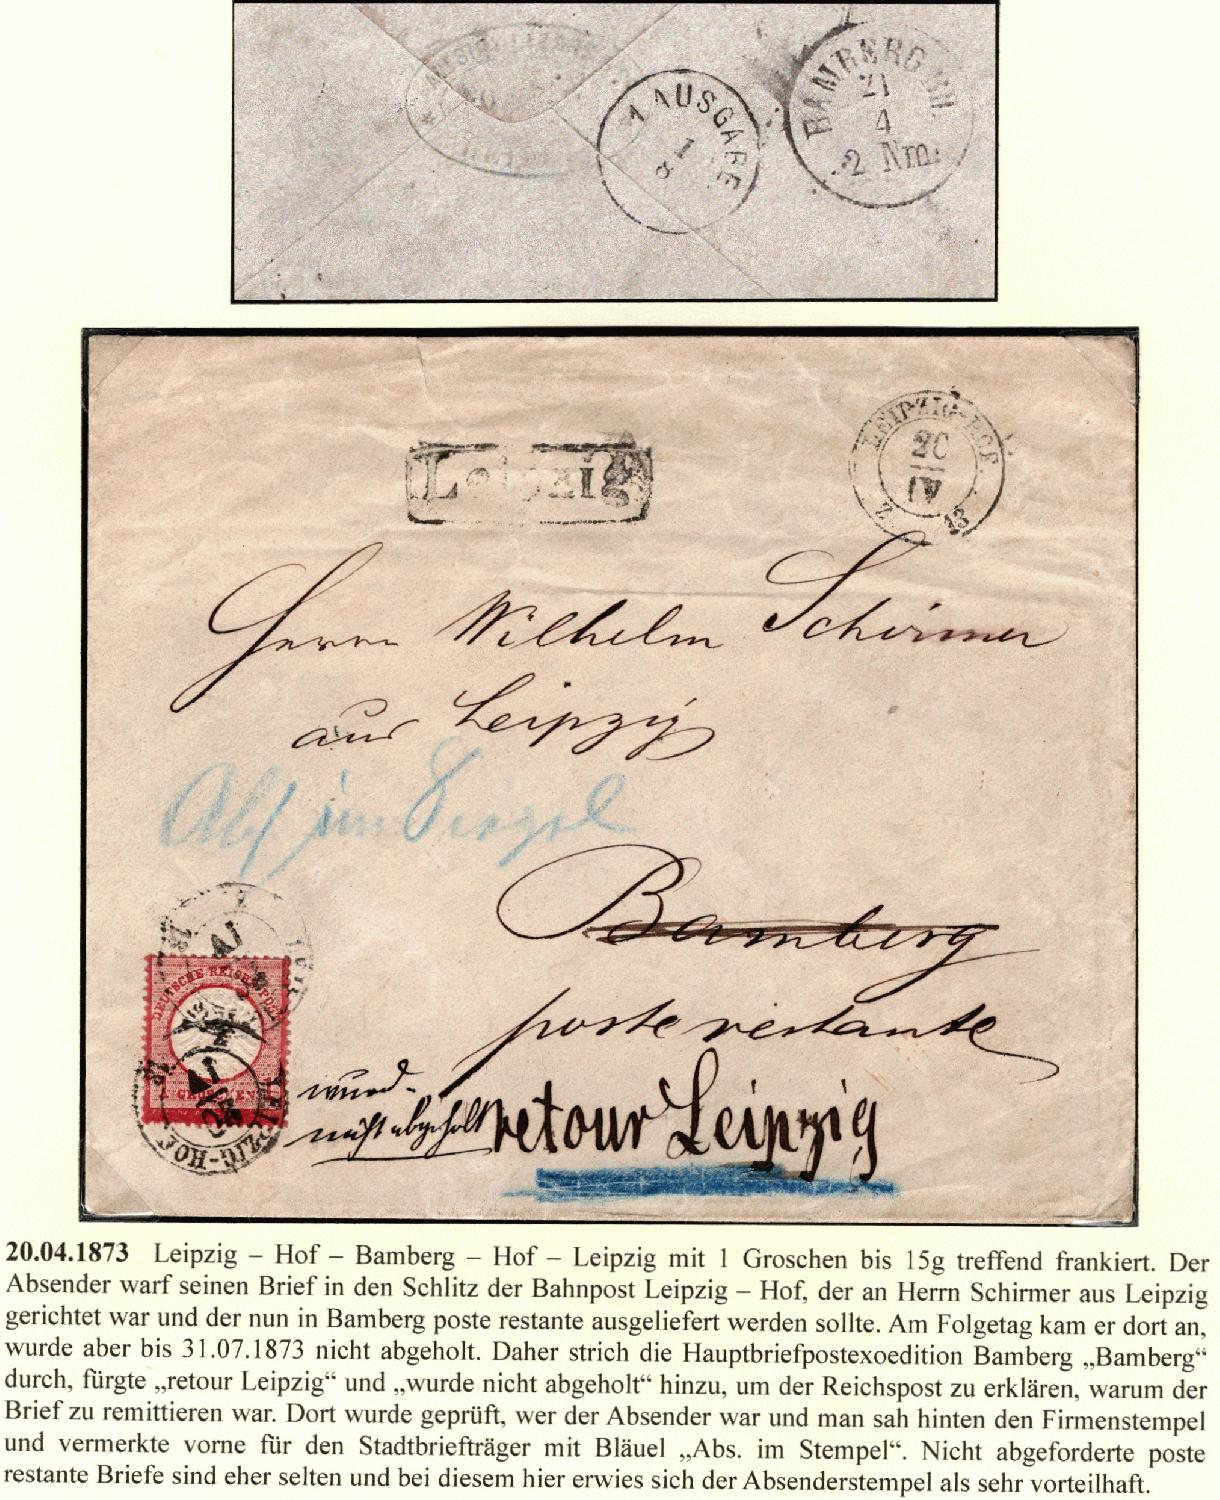 1 AUSGABE
1
8
BAMBERG BH.
21
4
2 Nm.
Leipzig
LEIPZIG-HOF
20
IV
Z 3
Herrn Wilhelm Schirmer
aus Leipzig
Bamberg
poste restante
DEUTSCHE REICHS-POST
1 GROSCHEN
LEIPZIG-HOF
20
IV
wurde
nicht abgeholt
retour Leipzig
20.04.1873 Leipzig – Hof – Bamberg – Hof – Leipzig mit 1 Groschen bis 15g treffend frankiert. Der
Absender warf seinen Brief in den Schlitz der Bahnpost Leipzig – Hof, der an Herrn Schirmer aus Leipzig
gerichtet war und der nun in Bamberg poste restante ausgeliefert werden sollte. Am Folgetag kam er dort an,
wurde aber bis 31.07.1873 nicht abgeholt. Daher strich die Hauptbriefpostexoedition Bamberg „Bamberg“
durch, fürgte „retour Leipzig“ und „wurde nicht abgeholt“ hinzu, um der Reichspost zu erklären, warum der
Brief zu remittieren war. Dort wurde geprüft, wer der Absender war und man sah hinten den Firmenstempel
und vermerkte vorne für den Stadtbriefträger mit Bläuel „Abs. im Stempel“. Nicht abgeforderte poste
restante Briefe sind eher selten und bei diesem hier erwies sich der Absenderstempel als sehr vorteilhaft.